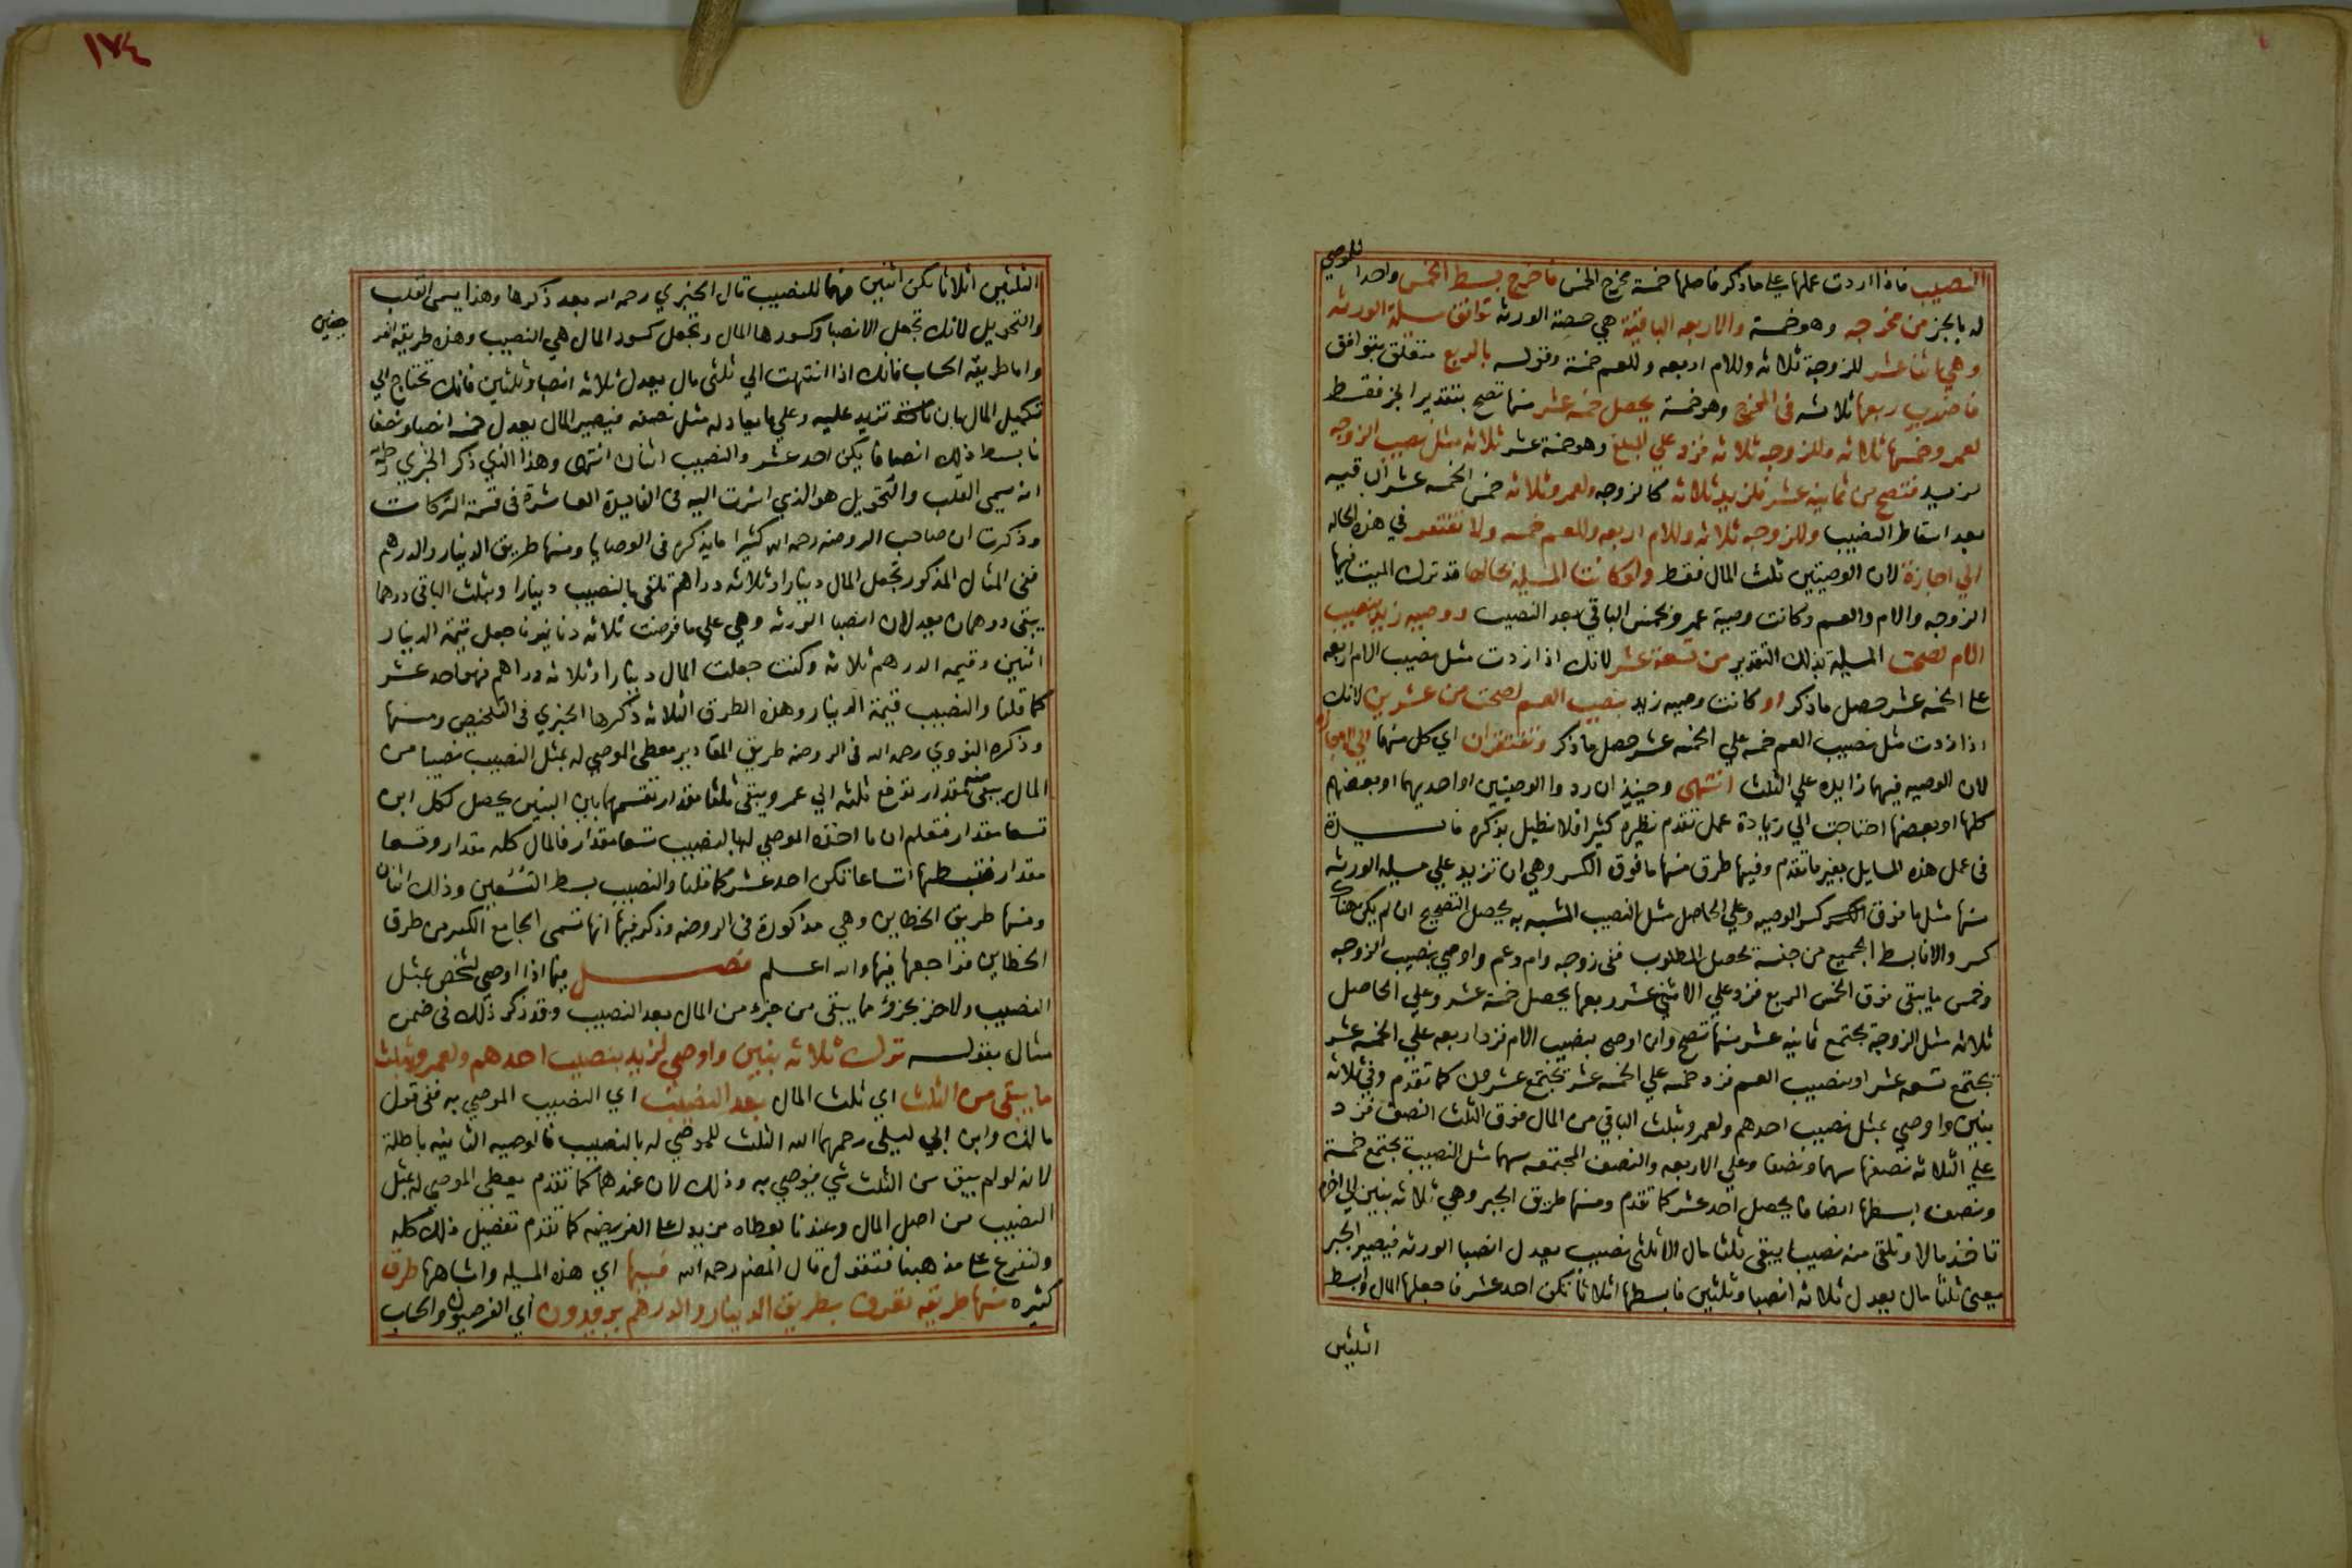 النصيب فاذا اردت عملها على ماذكر فاصلها خمسة مخرج الخمس فاخرج بسط الخمس واحدا للموصي
له بالجز من مخرجه وهو خمسة والاربعه الباقية هي حصة الورثه توافق مسلة الورثه
وهي اثناعشر للزوجة ثلاثه وللام اربعه وللعم خمسة وقوله بالربع متعلق بتوافق
فاضرب ربعها ثلاثه في المخرج وهو خمسة يحصل خمسه عشر منها تصح بتقدير الجز فقط
لعمر وخمسها ثلاثه وللزوجه ثلاثه فزد علي المبلغ وهو خمسة عشر ثلاثه مثل نصيب الزوجه
لزيد فتصح من ثمانيه عشر فلزيد ثلاثه كالزوجه ولعمر وثلاثه خمس الخمسه عشر الباقيه
بعد اسقاط النصيب وللزوجه ثلاثه وللام اربعه وللعم خمسه ولا تفتقر في هذه الحاله
الي اجازة لان الوصيتين ثلث المال فقط ولو كانت المسيله بحالها قد ترك الميت فيها
الزوجه والام والعم وكانت وصية عمر وبخمس الباقي بعد النصيب ووصيه زيد بنصيب
الام لصحت المسيلة بذلك التقدير من تسعة عشر لانك اذا زدت مثل نصيب الام اربعه
على الخمسه عشر حصل ماذكر او كانت وصيه زيد بنصيب العم لصحت من عشرين لانك
اذا زدت مثل نصيب العم خمسه علي الخمسه عشر حصل ماذكر وتفتقران اي كل منهما الي الاجازة
لان الوصيه فيهما زايده علي الثلث انتهى وحينيذ ان ردوا الوصيتين او احديهما او بعضهم
كلها او بعضها احتاجت الي زيادة عمل تقدم نظيره كثيرا فلا نطيل بذكره فايدة
في عمل هذه المسايل بغير ماتقدم وفيها طرق منها مافوق الكسر وهي ان تزيد علي مسيله الورثه
منها مثل ما فوق الكسر كسر الوصيه وعلي الحاصل مثل النصيب المشبه به يحصل التصحيح ان لم يكن هناك
كسر والا فابسط الجميع من جنسه تحصل المطلوب ففي زوجه وام وعم واوصي بنصيب الزوجه
وخمس مايبقى فوق الخمس الربع فزد علي الاثني عشر ربعها يحصل خمسة عشر وعلي الحاصل
ثلاثه مثل الزوجة يجتمع ثمانيه عشر منها تصح وان اوصى بنصيب الام فزد اربعه علي الخمسه عشر
يجتمع تسعه عشر او بنصيب العم فزد خمسه علي الخمسه عشر يجتمع عشرون كما تقدم وفي ثلاثه
بنين واوصي بمثل نصيب احدهم ولعمر وبثلث الباقي من المال فوق الثلث النصف فزد
على الثلاثه نصفها سهما ونصفا وعلي الاربعه والنصف المجتمعه سهما مثل النصيب يجتمع خمسة
ونصف ابسطها انصافا يحصل احد عشر كما تقدم ومنها طريق الجبر وهي ثلاثه بنين الي اخره
تاخذ مالا وتلقى منه نصيبا يبقى ثلثا مال الا ثلثي نصيب يعدل انصبا الورثه فيصير الجبر
يعني ثلثا مال يعدل ثلاثه انصبا وثلثين فابسطها اثلاثا تكن احد عشر فاجعلها المال وابسط
الثلثين
١٧٤
الثلثين اثلاثا تكن اثنين فهما للنصيب قال الخبري رحمه الله بعد ذكرها وهذا يسمى القلب
والتحويل لانك تجعل الانصبا وكسورها المال وتجعل كسور المال هي النصيب وهذه طريقه الفرضيين
واما طريقة الحساب فانك اذا انتهت الي ثلثى مال يعدل ثلاثه انصبا وثلثين فانك تحتاج الي
تكميل المال بان تزيد عليه وعلي ما يعادله مثل نصفه فيصير المال يعدل خمسه انصبا ونصفا
فابسط ذلك انصافا يكن احد عشر والنصيب اثنان انتهى وهذا الذي ذكر الخبري رحمه الله
انه يسمى القلب والتحويل هو الذي اشرت اليه في الفايدة العاشرة في قسمة التركات
وذكرت ان صاحب الروضه رحمه الله كثيرا مايذكره في الوصايا ومنها طريق الدينار والدرهم
ففي المثال المذكور تجعل المال دينارا وثلاثه دراهم تلقى بالنصيب دينارا وبثلث الباقي درهما
يبقى درهمان يعدلان انصبا الورثه وهي علي مافرضت ثلاثه دنانير فاجعل قيمة الدينار
اثنين وقيمه الدرهم ثلاثه وكنت جعلت المال دينارا وثلاثه دراهم فهو احد عشر
كما قلنا والنصيب قيمة الدينار وهذه الطرق الثلاثه ذكرها الخبري في التلخيص ومنها
وذكره النووي رحمه الله في الروضه طريق المقادير معطى الموصي له بمثل النصيب نصيبا من
المال يبقى منه مقدار تدفع ثلثه الي عمر ويبقى ثلثا مقدار تقسمها بين البنين يحصل لكل ابن
تسعا مقدار فتعلم ان ما اخذه الموصي له بالنصيب تسعا مقدار فالمال كله مقدار وتسعا
مقدار فتبسطها اتساعا تكن احد عشر كما قلنا والنصيب بسط التسعين وذلك اثنان
ومنها طريق الخطاين وهي مذكورة في الروضه وذكر فيها انها تسمى الجامع الكبير من طرق
الخطاين فراجعها فيها والله اعلم فصل فيما اذا اوصي لشخص بمثل
النصيب ولاخر بجزؤ مما يبقى من جزء من المال بعد النصيب وقد ذكر ذلك في ضمن
مثال بقوله ترك ثلاثه بنين واوصي لزيد بنصيب احدهم ولعمر وبثلث
مايبقى من الثلث اي ثلث المال بعد النصيب اي النصيب الموصي به ففي قول
مالك وابن ابي ليلى رحمهما الله الثلث للموصي له بالنصيب فالوصيه الثانيه باطلة
لانه لو لم يبق من الثلث شي فيوصي به وذلك لان عندهما كما تقدم يعطي الموصي له بمثل
النصيب من اصل المال وعندنا يعطاه مزيدا على الفريضه كما تقدم تفصيل ذلك كله
ولنفرع على مذهبنا فنقول قال المصنف رحمه الله فيها اي هذه المسيله واشباهها طرق
كثيره منها طريقه تعرف بطريق الدينار والدرهم يريدون اي الفرضيون والحساب